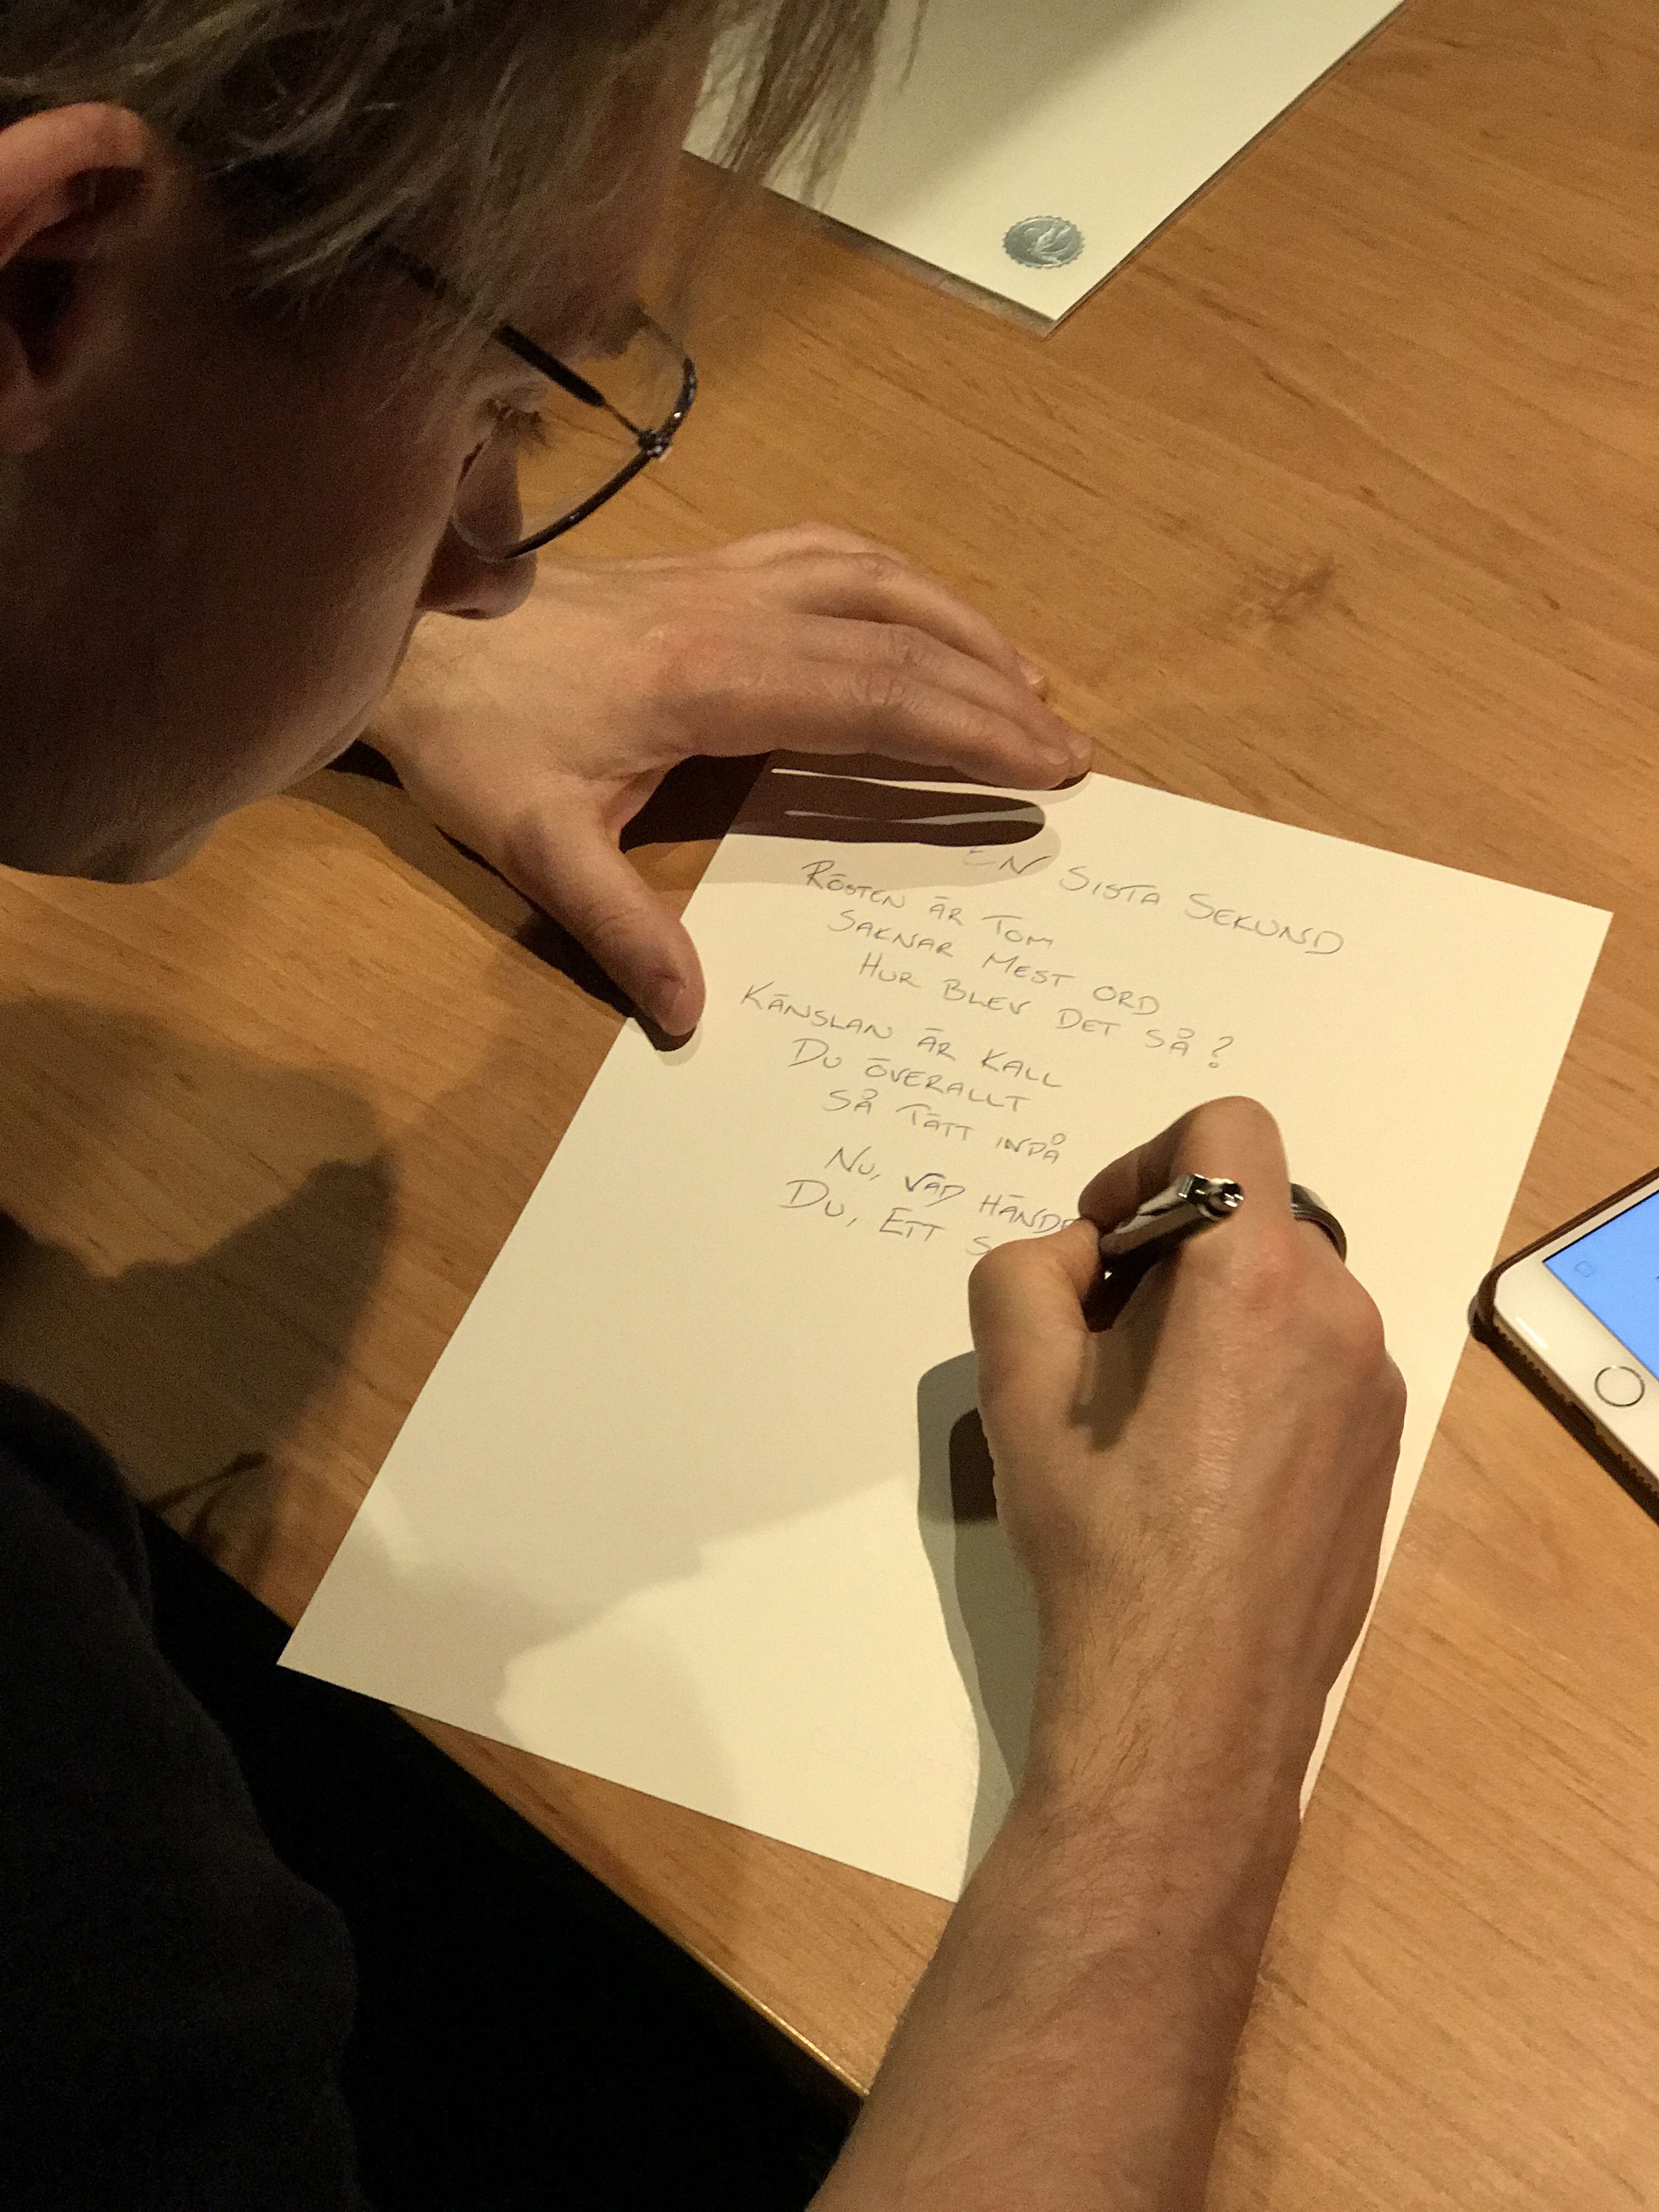 EN SISTA SEKUND
RÖSTEN ÄR TOM
SAKNAR MEST ORD
HUR BLEV DET SÅ?
KÄNSLAN ÄR KALL
DU ÖVERALLT
SÅ TÄTT INPÅ
NU, VAD
DU, ETT